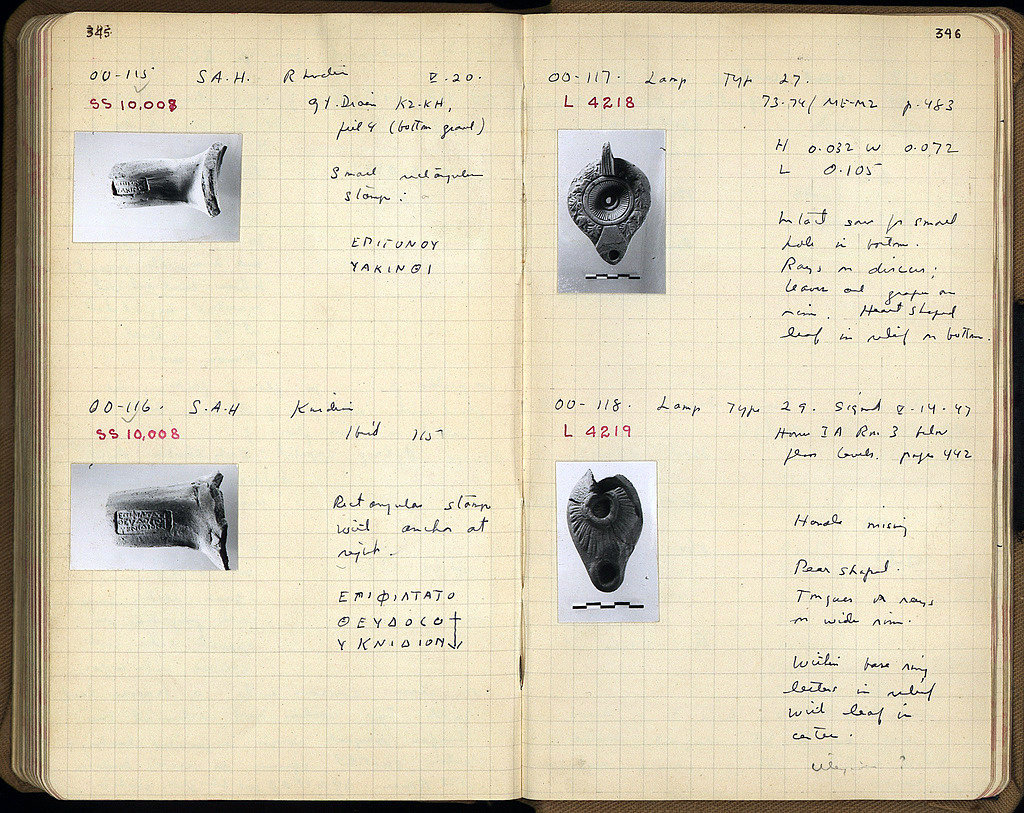 345
00-115 S.A.H. Rhodian V.20.
SS 10,008
Gt. Drain K2-KH,
fill 4 (bottom gravel)
Small rectangular
stamp:
ΕΠΙΓΟΝΟΥ
ΥΑΚΙΝΘΙ
00-116. S.A.H Knidian
SS 10,008
Ibid 115
Rectangular stamp
with anchor at
right.
ΕΠΙΦΙΛΤΑΤΟ
ΘΕΥΔΟCΟ
Υ ΚΝΙΔΙΟΝ
346
00-117. Lamp Type 27.
L 4218
73.74/ ΜΕ-Μ2 p.483
H 0.032 W 0.072
L 0.105
Intact save for small
hole in bottom.
Rays on discus;
leaves and grapes on
rim. Heart shaped
leaf in relief on bottom.
00-118. Lamp Type 29. Signed V-14-47
L 4219
House I A Rm. 3 below
floor levels. page 442
Handle missing
Pear shaped.
Tongues or rays
on wide rim.
Within base ring
letters in relief
with leaf in
center.